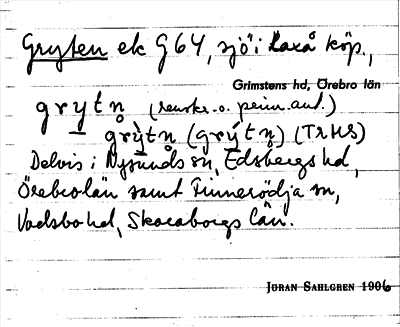 Gryten ek G64, sjö i Laxå köp.,
Grimstens hd, Örebro län
grytn (renskr. o. penn. ant.)
grỳtn̥ (grýtn̥) (TrHS)
Delvis i Nysunds sn, Edsbergs hd,
Örebro län samt Finnerödja sn,
Vadsbo hd, Skaraborgs län.
JÖRAN SAHLGREN 1906